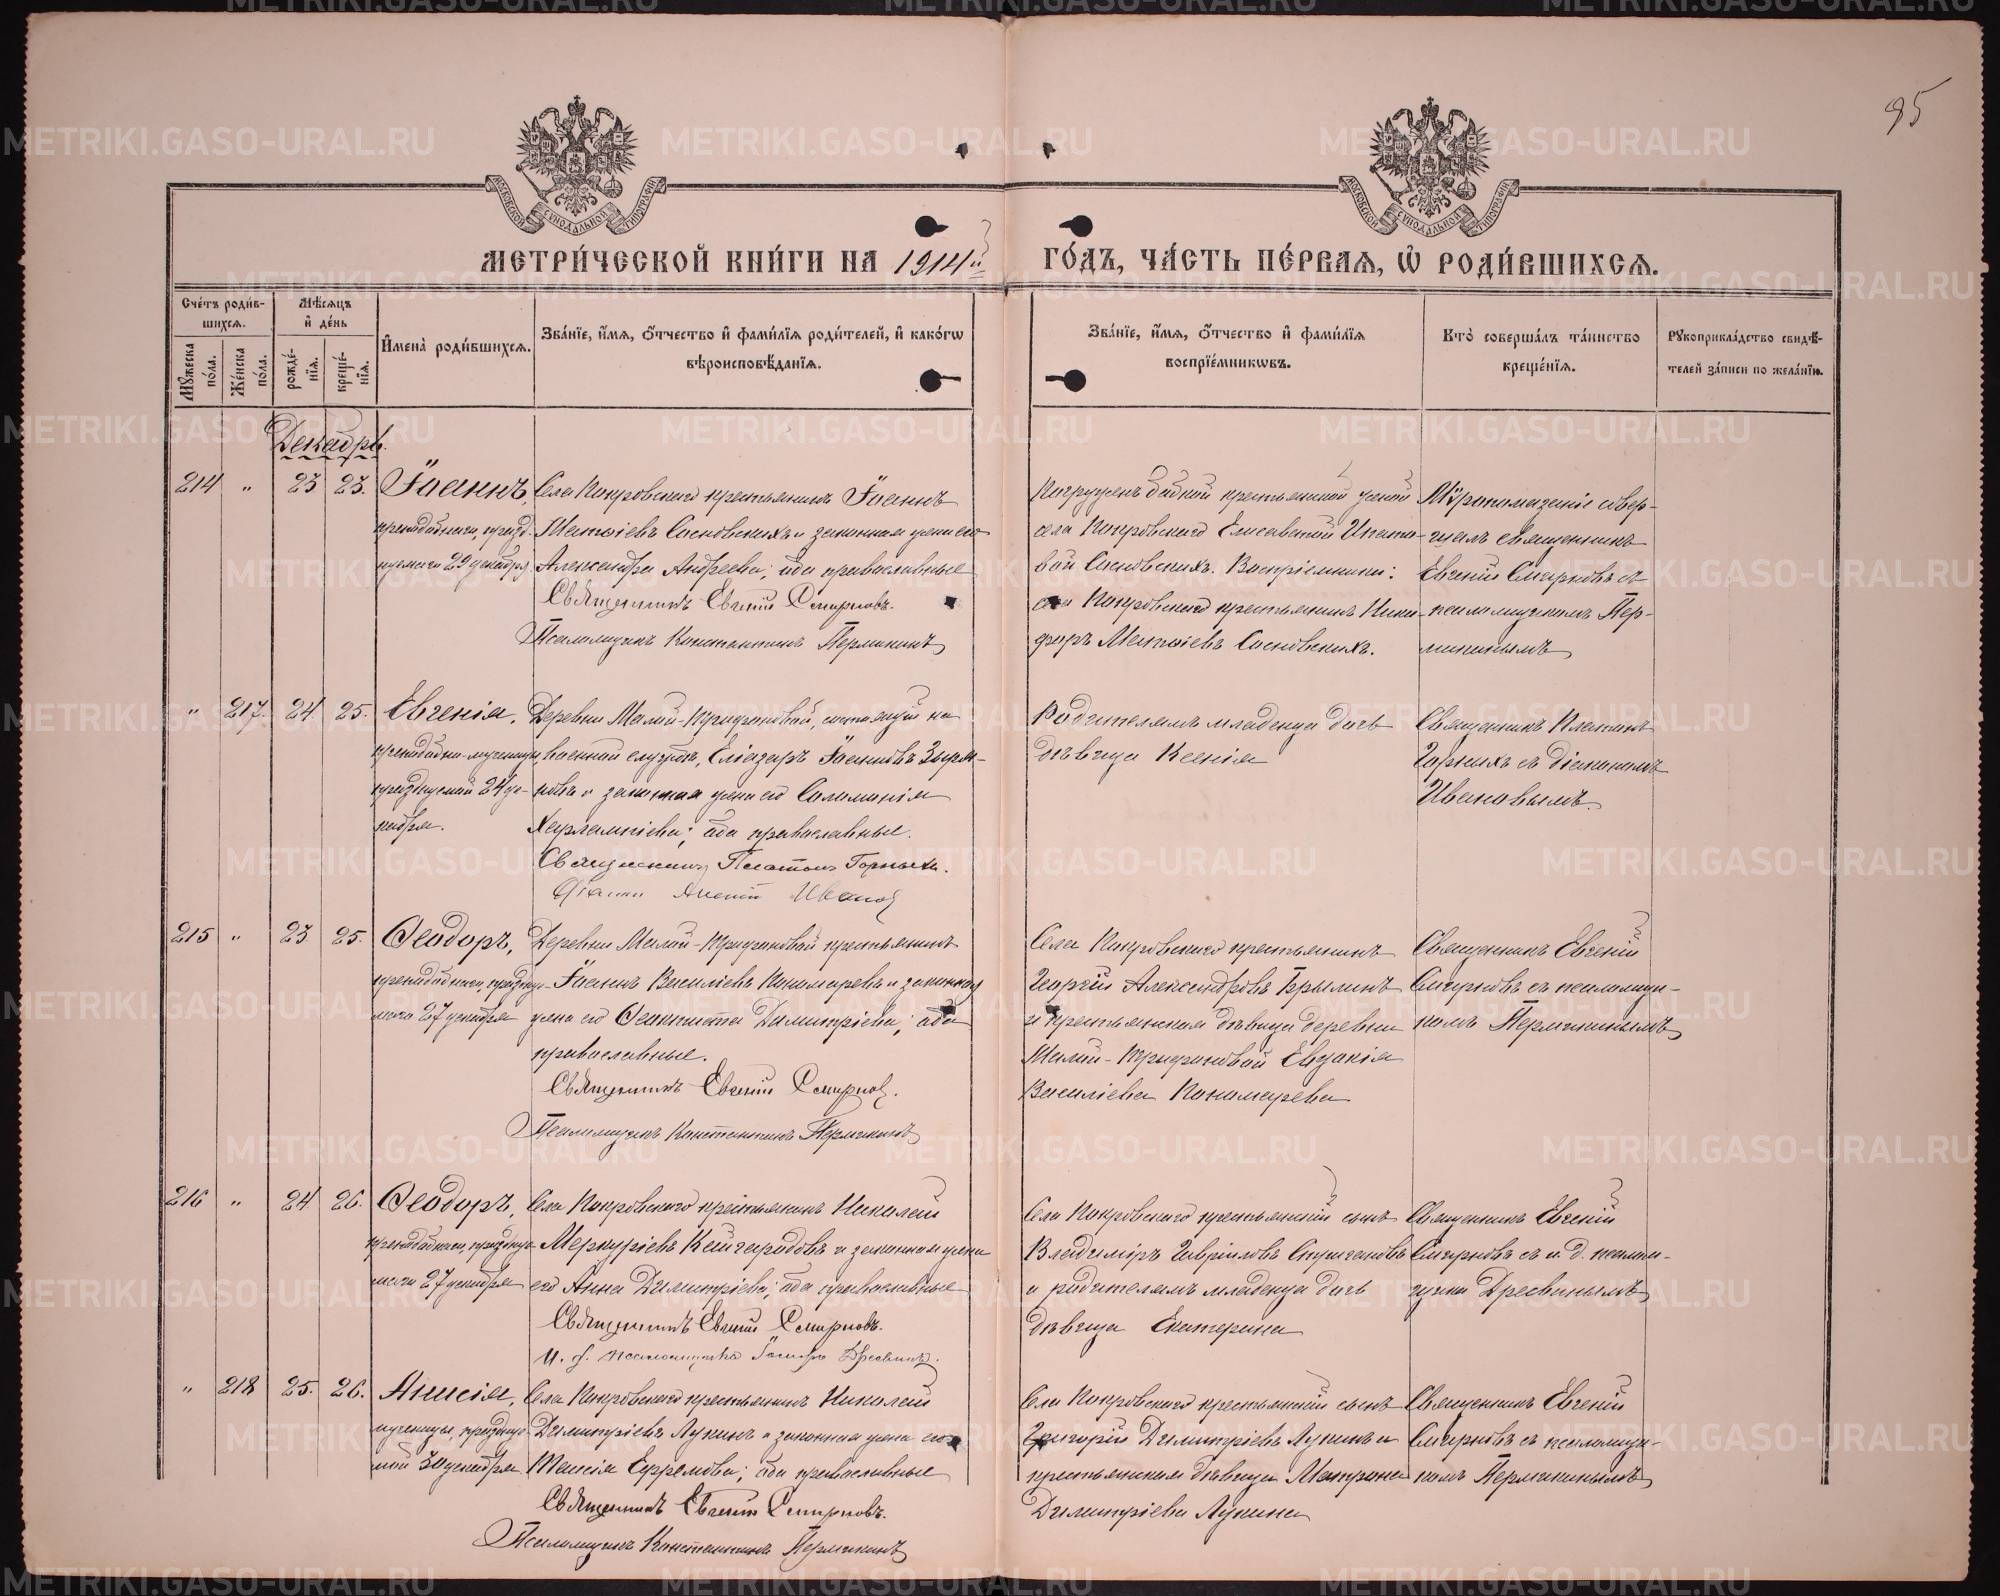 95
МОСКОВСКОЙ СѴНОДАЛЬНОЙ ТИПОГРАФІИ
МОСКОВСКОЙ СѴНОДАЛЬНОЙ ТИПОГРАФІИ
МЕТРИ́ЧЕСКОЙ КНИ́ГИ НА 1914й ГО́ДЪ, ЧА́СТЬ ПЕ́РВАЯ, Ѡ РОДИ́ВШИХСЯ.
Сче́тъ роди́в-
шихся.
Мѣ́сяцъ
и де́нь
Мꙋжеска по́ла.
Же́нска по́ла.
рожде́-
нїя.
креще́-
нїя.
Имена̀ роди́вшихся.
Зва́нїе, и́мя, о́тчество и фами́лїя роди́телей, и како́гѡ
вѣроисповѣ́данїя.
Зва́нїе, и́мя, о́тчество и фами́лїя
воспрїе́мникѡвъ.
Кто̀ соверша́лъ та́инство
креще́нїя.
Рꙋкоприкла́дство свидѣ́-
телей за́писи по жела́нїю.
Декабрь.
214 " 23 23. Іоаннъ,
преподобнаго, празд-
нуемаго 29 декабря
Села Покровскаго крестьянинъ Іоаннъ
Матѳіевъ Сосновскихъ и законная жена его
Александра Андреева; оба православные
Священникъ Евгеній Смирновъ.
Псаломщикъ Константинъ Пермикинъ
Погруженъ бабкой крестьянской женой
села Покровскаго Елисаветой Ипато-
вой Сосновскихъ. Воспріемники:
села Покровскаго крестьянинъ Ники-
форъ Матѳіевъ Сосновскихъ.
Мѵропомазаніе совер-
шалъ священникъ
Евгеній Смирновъ съ
псаломщикомъ Пер-
микинымъ
" 217. 24 25. Евгенія,
преподобно-мученицы,
празднуемой 24 де-
кабря.
Деревни Малой-Трифоновой, состоящій на
военной службѣ, Еліазаръ Іоанновъ Зыря-
новъ и законная жена его Соломонія
Харлампіева; оба православные.
Священникъ Платонъ Горныхъ.
Діаконъ Иванов
Родителямъ младенца дочь
дѣвица Ксенія
Священникъ Платонъ
Горныхъ съ діакономъ
Ивановымъ.
215 " 23 25. Ѳеодоръ,
преподобнаго, праздну-
маго 27 декабря
Деревни Малой-Трифоновой крестьянинъ
Іоаннъ Василіевъ Пономаревъ и законная
жена его Ѳеоктиста Димитріева; оба
православные.
Священникъ Евгеній Смирнов.
Псаломщикъ Константинъ Пермикинъ
Села Покровскаго крестьянинъ
Георгій Александровъ Брылинъ
и крестьянская дѣвица деревни
Малой-Трифоновой Евдокія
Василіева Пономарева
Священникъ Евгеній
Смирновъ съ псаломщи-
комъ Пермикинымъ
216 " 24 26. Ѳеодоръ,
преподобнаго, праздну-
маго 27 декабря
Села Покровскаго крестьянинъ Николай
Меркуріевъ и законная жена
его Анна Димитріева; оба православные
Священникъ Евгеній Смирновъ.
И. д. псаломщика Дресвинъ.
Села Покровскаго крестьянскій сынъ
Владиміръ Гавріиловъ
и родителямъ младенца дочь
дѣвица Екатерина
Священникъ Евгеній
Смирновъ съ и. д. псалом-
щика Дресвинымъ
" 218 25. 26. Анисія,
мученицы, праздну-
мой 30 декабря
Села Покровскаго крестьянинъ Николай
Димитріевъ Лукинъ и законная жена его
Таисія Ефремова; оба православные
Священникъ Евгеній Смирновъ.
Псаломщикъ Константинъ Пермикинъ
Села Покровскаго крестьянскій сынъ
Григорій Димитріевъ Лукинъ и
крестьянская дѣвица Матрона
Димитріева Лукина
Священникъ Евгеній
Смирновъ съ псаломщи-
комъ Пермикинымъ
METRIKI.GASO-URAL.RU